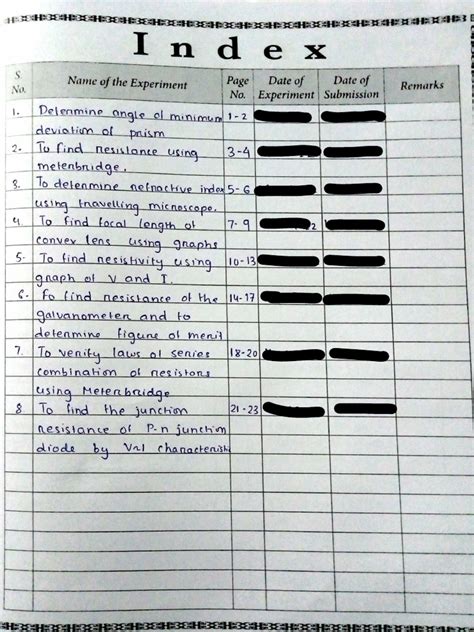 Index
S. No. Name of the Experiment Page No. Date of Experiment Date of Submission Remarks
1. Determine angle of minimum 1-2
deviation of prism
2. To find resistance using 3-4
meterbridge.
3. To determine refractive index 5-6
using travelling microscope.
4. To find focal length of 7-9 2
convex lens using graphs
5. To find resistivity using 10-13
graph of V and I.
6. To find resistance of the 14-17
galvanometer and to
determine figure of merit
7. To verify laws of series 18-20
combination of resistors
using Meterbridge
8. To find the junction 21-23
resistance of P-n junction
diode by V-I characterist